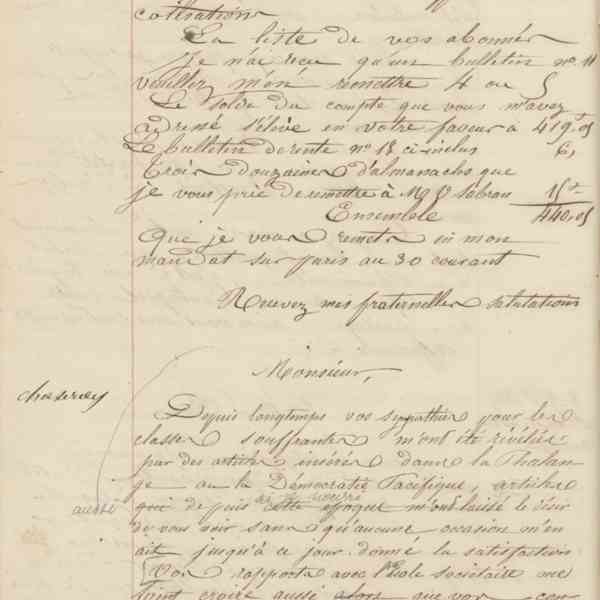 cotisation
La liste de vos abonnés
Je n'ai reçu qu'un bulletin no. 11
veuillez m'en remettre 4 ou 5
Le solde du compte que vous m'avez
adressé s'élève en votre faveur à 419f.05
Le bulletin de rente no 13 ci-inclus 6,
Trois douzaines d'almanachs que
je vous prie de remettre à Mr V Sabran 15
Ensemble 440.05
Que je vous remets en mon
mandat sur Paris au 30 courant
Recevez mes fraternelles salutations
Monsieur,
Depuis longtemps vos sympathies pour les
classes souffrantes m'ont été révélées
par des articles insérés dans la Phalan
ge ou la Démocratie Pacifique, articles
qui depuis cette époque m'ont laissé le désir
aussi
de vous voir sans qu'aucune occasion m'en
ait jusqu'à ce jour donné la satisfaction
Vos rapports avec l'Ecole sociétaire me
font croire aussi alors que vos con